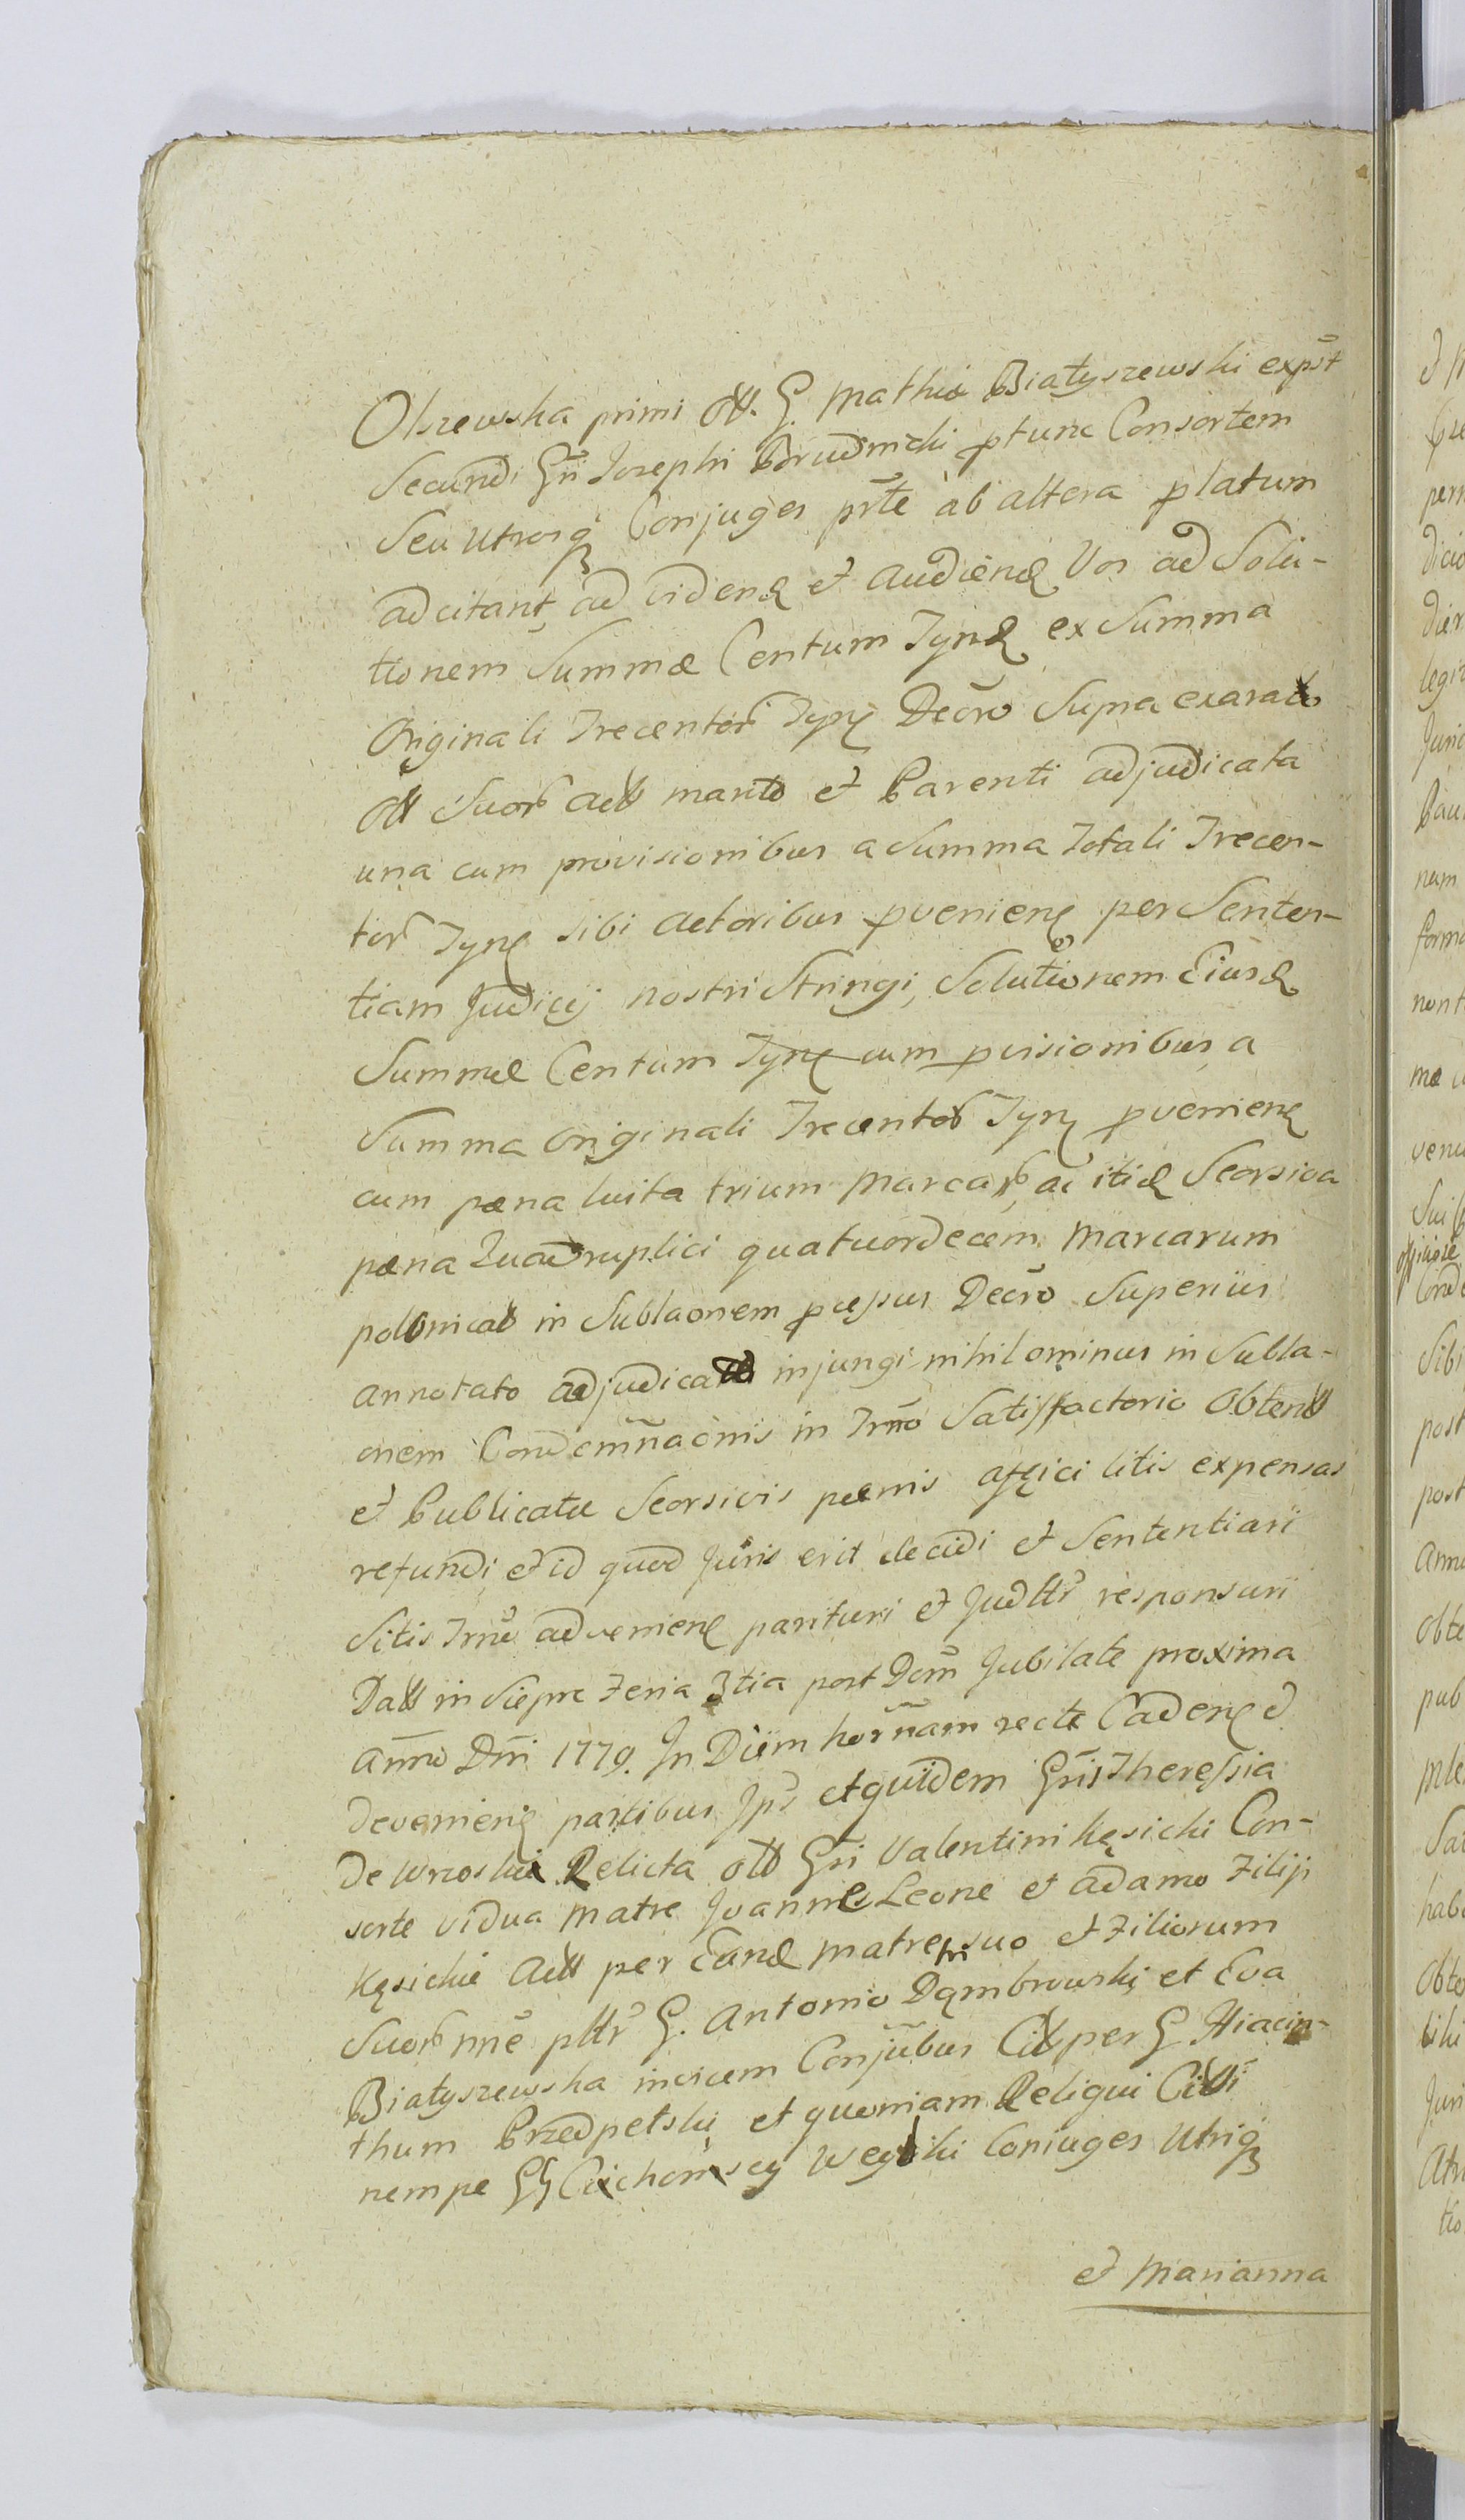 Olszewska primi olt. G. Mathiæ Białyszewski expꝰt
Secundi Gñi Josephi Brudnicki ptunc Consortem
Seu Utrosq Conjuges pr̃te ab altera platum
adcitant, ad vidend et audiend Vos ad Solu-
tionem Summæ Centum Tynf ex Summa
Originali Trecentor Tynf Decro Supra exarato
olt Suor actt marito et Parenti adjudicata
una cum provisionibus a Summa Totali Trecen-
tor Tynf sibi actoribus pvenienț per Senten-
tiam Judicij nostri Stringi, Solutionem Eiusd
Summæ Centum Tynf cum pvisionibus a
Summa Originali Trecentor Tynf pvenient
cum pæna luita trium Marcar, ac itid Seorsiva
pæna Quadruplici quatuordecem Marcarum
polonical in Sublaonem pcessus Decro Superius
annotato adjudicata injungi nihilominus in Subla-
onem Condemñaonis in Trno Satisfactorio Obtent
et Publicatæ Seorsivis pænis affici litis expensas
refundi et id quod Juris erit decidi et Sententiari
Sitis Trno advenient parituri et Judltr responsuri
Datt in Siepre Feria 3tia post Dom̃ Jubilate proxima
Anno Dñi 1779. In Diem horñam recte Cadent d
devenient partibus Jps et quidem Gñis Theressia
de Wnoski Relicta olt Gñi Valentini Kęsicki Con-
sorte vidua Matre Joannes Leone et Adamo Filij
Kęsickie Actt per Eand Matrem suo et Filiorum
Suor nñe pltr G. Antonio Dąmbrowski et Eva
Białyszewska invicem Conjũbus Citt per G Hiacin-
thum Przedpełski et quoniam Religui Citti
nempe GG Cichonscy Conjuges Utriq
et Marianna